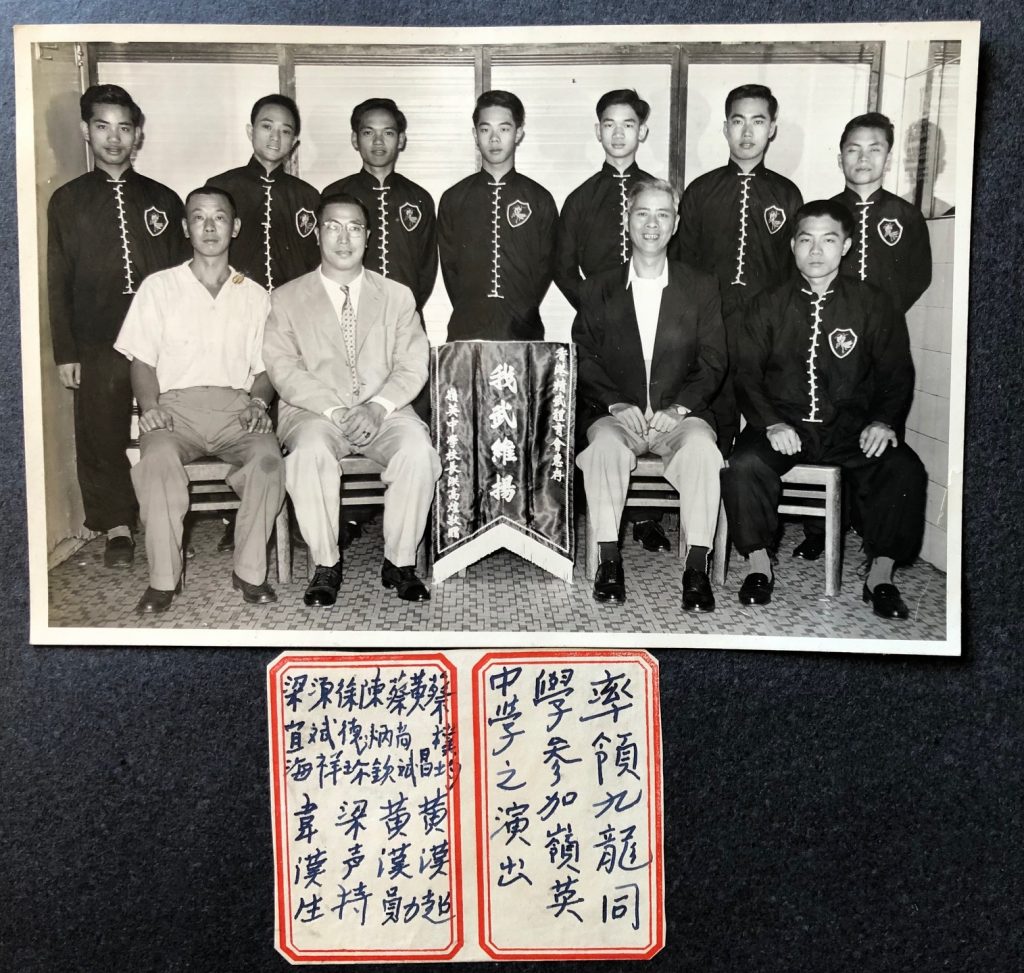 香港精武體育會惠存
我武維揚
嶺英中學校長洪高煌敬贈
率領九龍同
學參加嶺英
中學之演出
蔡
黃 昌
蔡尚斌
陳炳欽
徐德珍
源斌祥
梁宜海
黃漢超
黃漢勛
梁声持
韋漢生